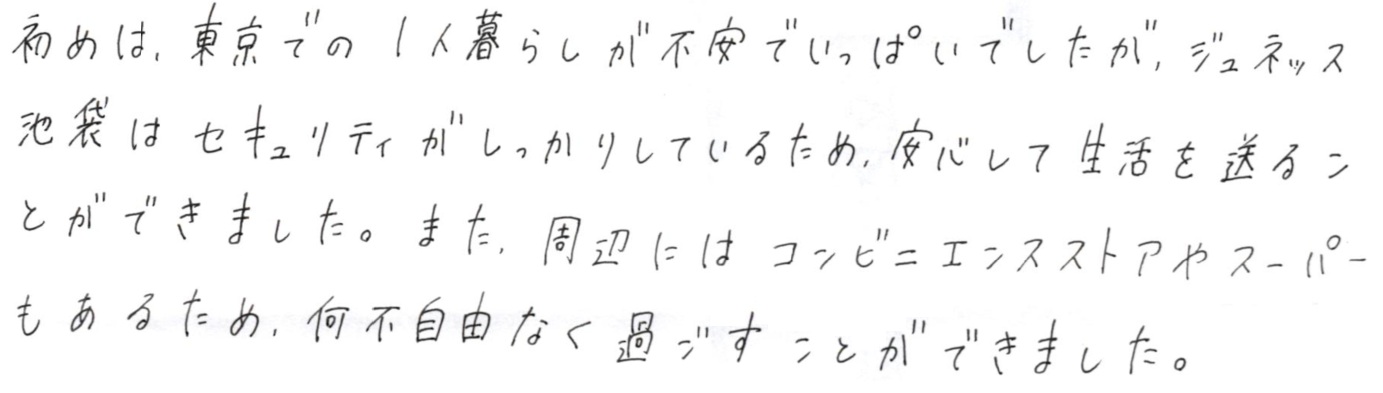 初めは、東京での1人暮らしが不安でいっぱいでしたが、ジュネッス
池袋はセキュリティがしっかりしているため、安心して生活を送るこ
とができました。また、周辺にはコンビニエンスストアやスーパー
もあるため、何不自由なく過ごすことができました。